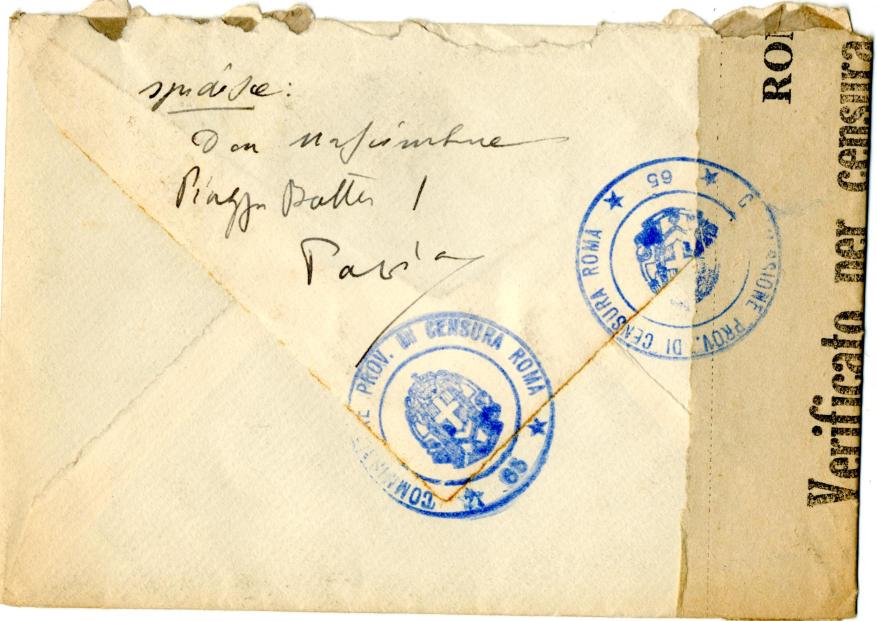 spedisce:
Don
Piazza Botta 1
Pavia
COMMISSIONE PROV. DI CENSURA ROMA
★ 65 ★
COMMISSIONE PROV. DI CENSURA ROMA
★ 65 ★
ROM
Verificato per censura